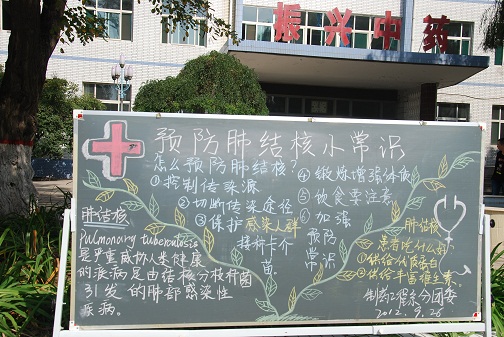 振兴中药
预防肺结核小常识
怎么预防肺结核?
①控制传染源
②切断传染途径
③保护感染人群
接种卡介
苗。
④锻炼增强体质
⑤饮食要注意
⑥加强
预防
常识
肺结核
pulmonary tuberculosis
是严重威胁人类健康
的疾病是由结核分枝杆菌
引发的肺部感染性
疾病。
肺结核
患者吃什么好
①供给优质蛋白
②供给丰富维生素
制药工程系分团委
2012.9.26